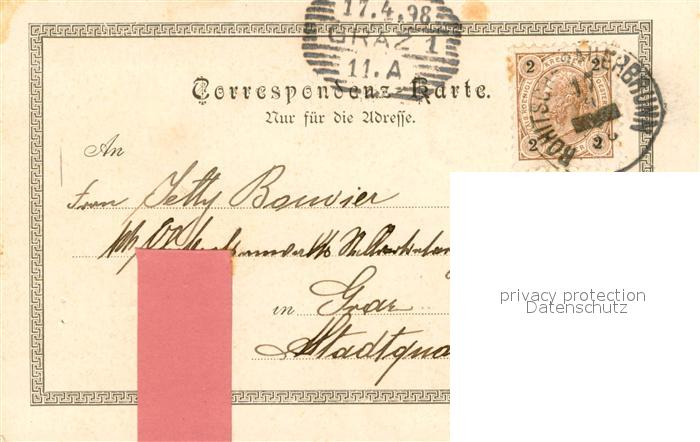 17.4.98
GRAZ 1
11.A
2 KREUZER 2
2 2
ROHITSCH-SAUERBRUNN
Correspondenz-Karte.
Nur für die Adresse.
An
Frau Jetty Bouvier
in Graz
Stadtqua
privacy protection
Datenschutz